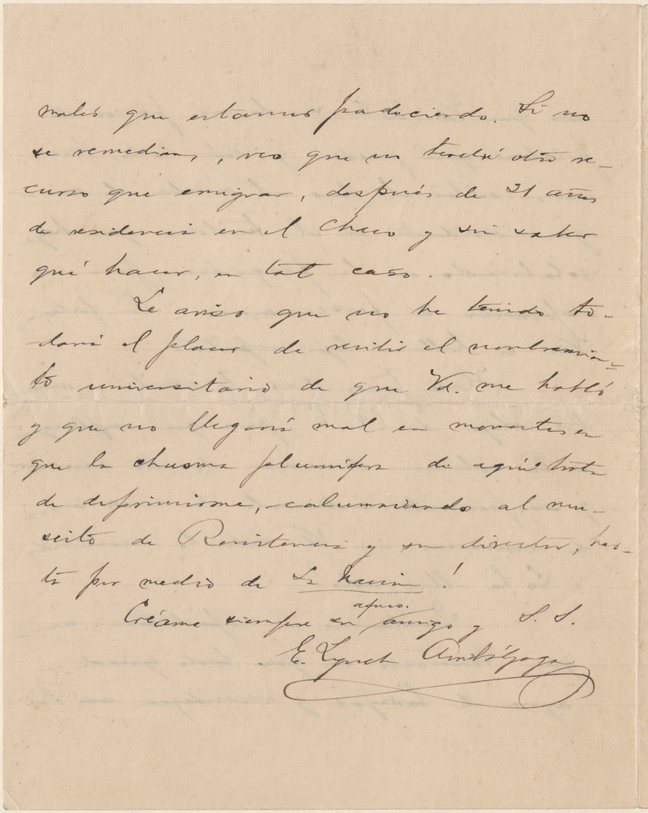 males que estamos padeciendo. Si no
se remedian, veo que no tendré otro re-
curso que emigrar, después de 21 años
de residencia en el Chaco y sin saber
qué hacer, en tal caso.
Le aviso que no he tenido to-
davía el placer de recibir el nombramien-
to universitario de que Vd. me habló
y que no llegaría mal en momentos en
que la chusma plumífera de aquí trata
de deprimirme, calumniando al mu-
seito de Resistencia y su director, has-
ta por medio de La Nación!
afmo.
Créame siempre su amigo y S. S.
E. Lynch Arribálzaga